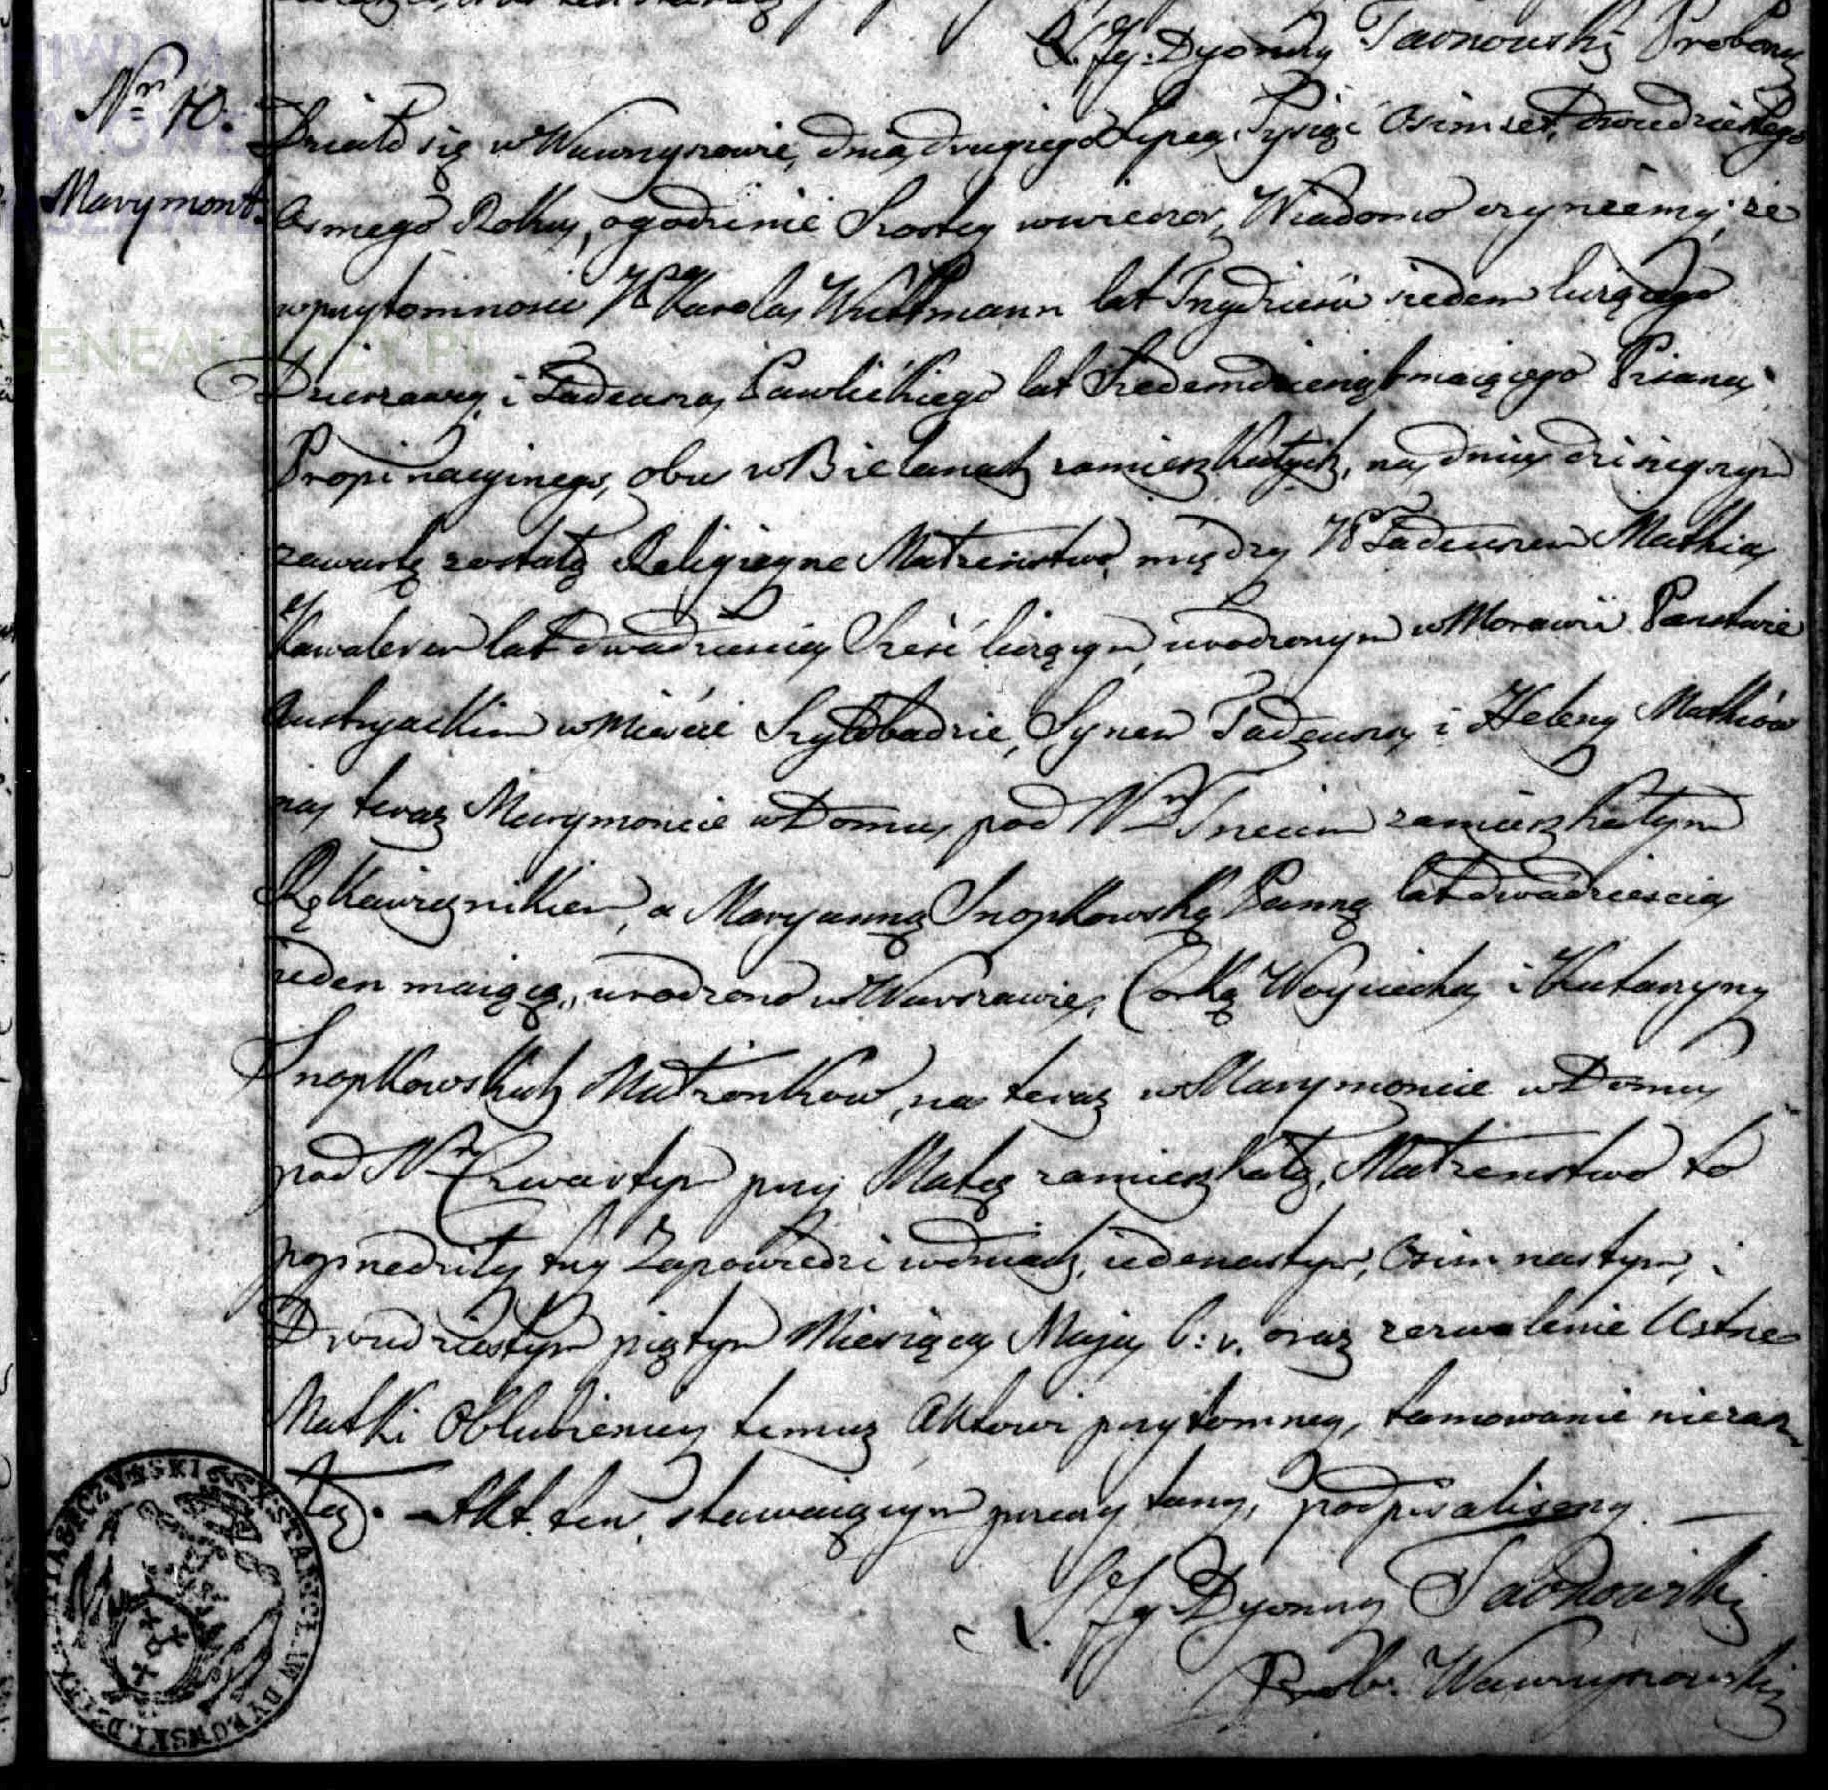 X. Jg: Dyonizy Tarnowski Proboszcz
Nr 10.
Marymont.
Działo się w Wawrzyszewie, dnia drugiego Lipca, Tysiąc Osimset, dwudziestego
Osmego Roku, o godzinie Szostey wwieczor, Wiadomo czyniemy, że
wprzytomnosci Karola Wittmann lat Trzydzieści siedem liczącego
Dzierzawcy i Tadeusza Pawlickiego lat Siedemdziesiąt maiącego Pisarza
Propinacyinego, obu w Bielanach zamieszkałych, na dniu dzisieyszym
zawarte zostało Religiyne Małżeństwo, między Tadeuszem Mathia
Kawalerem lat dwadzieścia Sześć liczącym, urodzonym w Morawii Państwie
Austryackim w Mieście Szylbadzie, Synem Tadeusza i Heleny Mathiow
na teraz Marymoncie w Domu pod Nr Trzecim zamieszkałym
Rękawicznikiem, a Maryanną Snopkowską Panną lat dwadzieścia
ieden maiącą, urodzoną w Warszawie, Corką Woyciecha i Katarzyny
Snopkowskich Małżonkow, na teraz w Marymoncie w Domu
pod Nr Czwartym przy Matce zamieszkałą. Małżeństwo to
poprzedziły trzy Zapowiedzi w dniach, iedenastym, Osimnastym, i
Dwudziestym piątym Miesiąca Maja b: r. oraz zezwolenie Ustne
Matki Oblubienicy temuż Aktowi przytomney, tamowanie niezasz
ło. Akt ten stawaiącym przeczytany, podpisaliśmy.
X. Jg Dyonizy Tarnowski
Prob. Wawrzyszewski